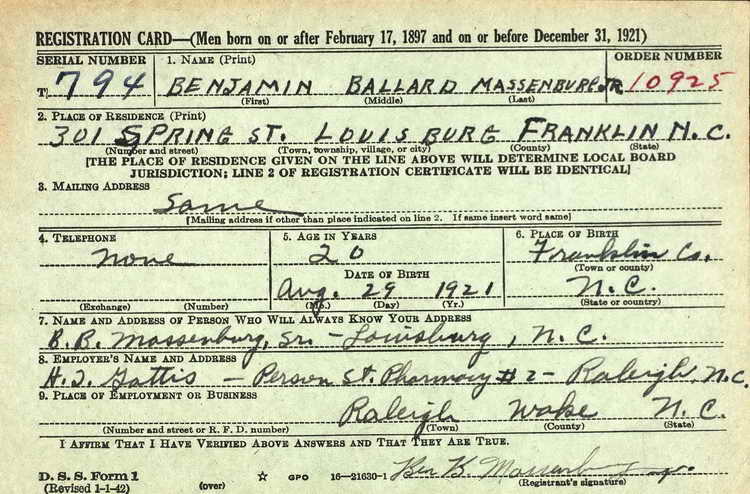 REGISTRATION CARD—(Men born on or after February 17, 1897 and on or before December 31, 1921)
SERIAL NUMBER 1. NAME (Print) ORDER NUMBER
T 794 BENJAMIN BALLARD MASSENBURG JR. 10925
(First) (Middle) (Last)
2. PLACE OF RESIDENCE (Print)
301 SPRING ST. LOUISBURG FRANKLIN N.C.
(Number and street) (Town, township, village, or city) (County) (State)
[THE PLACE OF RESIDENCE GIVEN ON THE LINE ABOVE WILL DETERMINE LOCAL BOARD
JURISDICTION; LINE 2 OF REGISTRATION CERTIFICATE WILL BE IDENTICAL]
3. MAILING ADDRESS
Same
[Mailing address if other than place indicated on line 2. If same insert word same]
4. TELEPHONE 5. AGE IN YEARS 6. PLACE OF BIRTH
None 20 Franklin Co.
(Town or county)
DATE OF BIRTH
Aug. 29 1921 N.C.
(Exchange) (Number) (Mo.) (Day) (Yr.) (State or country)
7. NAME AND ADDRESS OF PERSON WHO WILL ALWAYS KNOW YOUR ADDRESS
B. B. Massenburg, Sr. - Louisburg, N.C.
8. EMPLOYER'S NAME AND ADDRESS
H. T. Gattis - Person St. Pharmacy #2 - Raleigh, N.C.
9. PLACE OF EMPLOYMENT OR BUSINESS
Raleigh Wake N.C.
(Number and street or R. F. D. number) (Town) (County) (State)
I AFFIRM THAT I HAVE VERIFIED ABOVE ANSWERS AND THAT THEY ARE TRUE.
D. S. S. Form 1
(Revised 1-1-42) (over) ☆ GPO 16—21630-1 Ben B. Massenburg Jr.
(Registrant's signature)